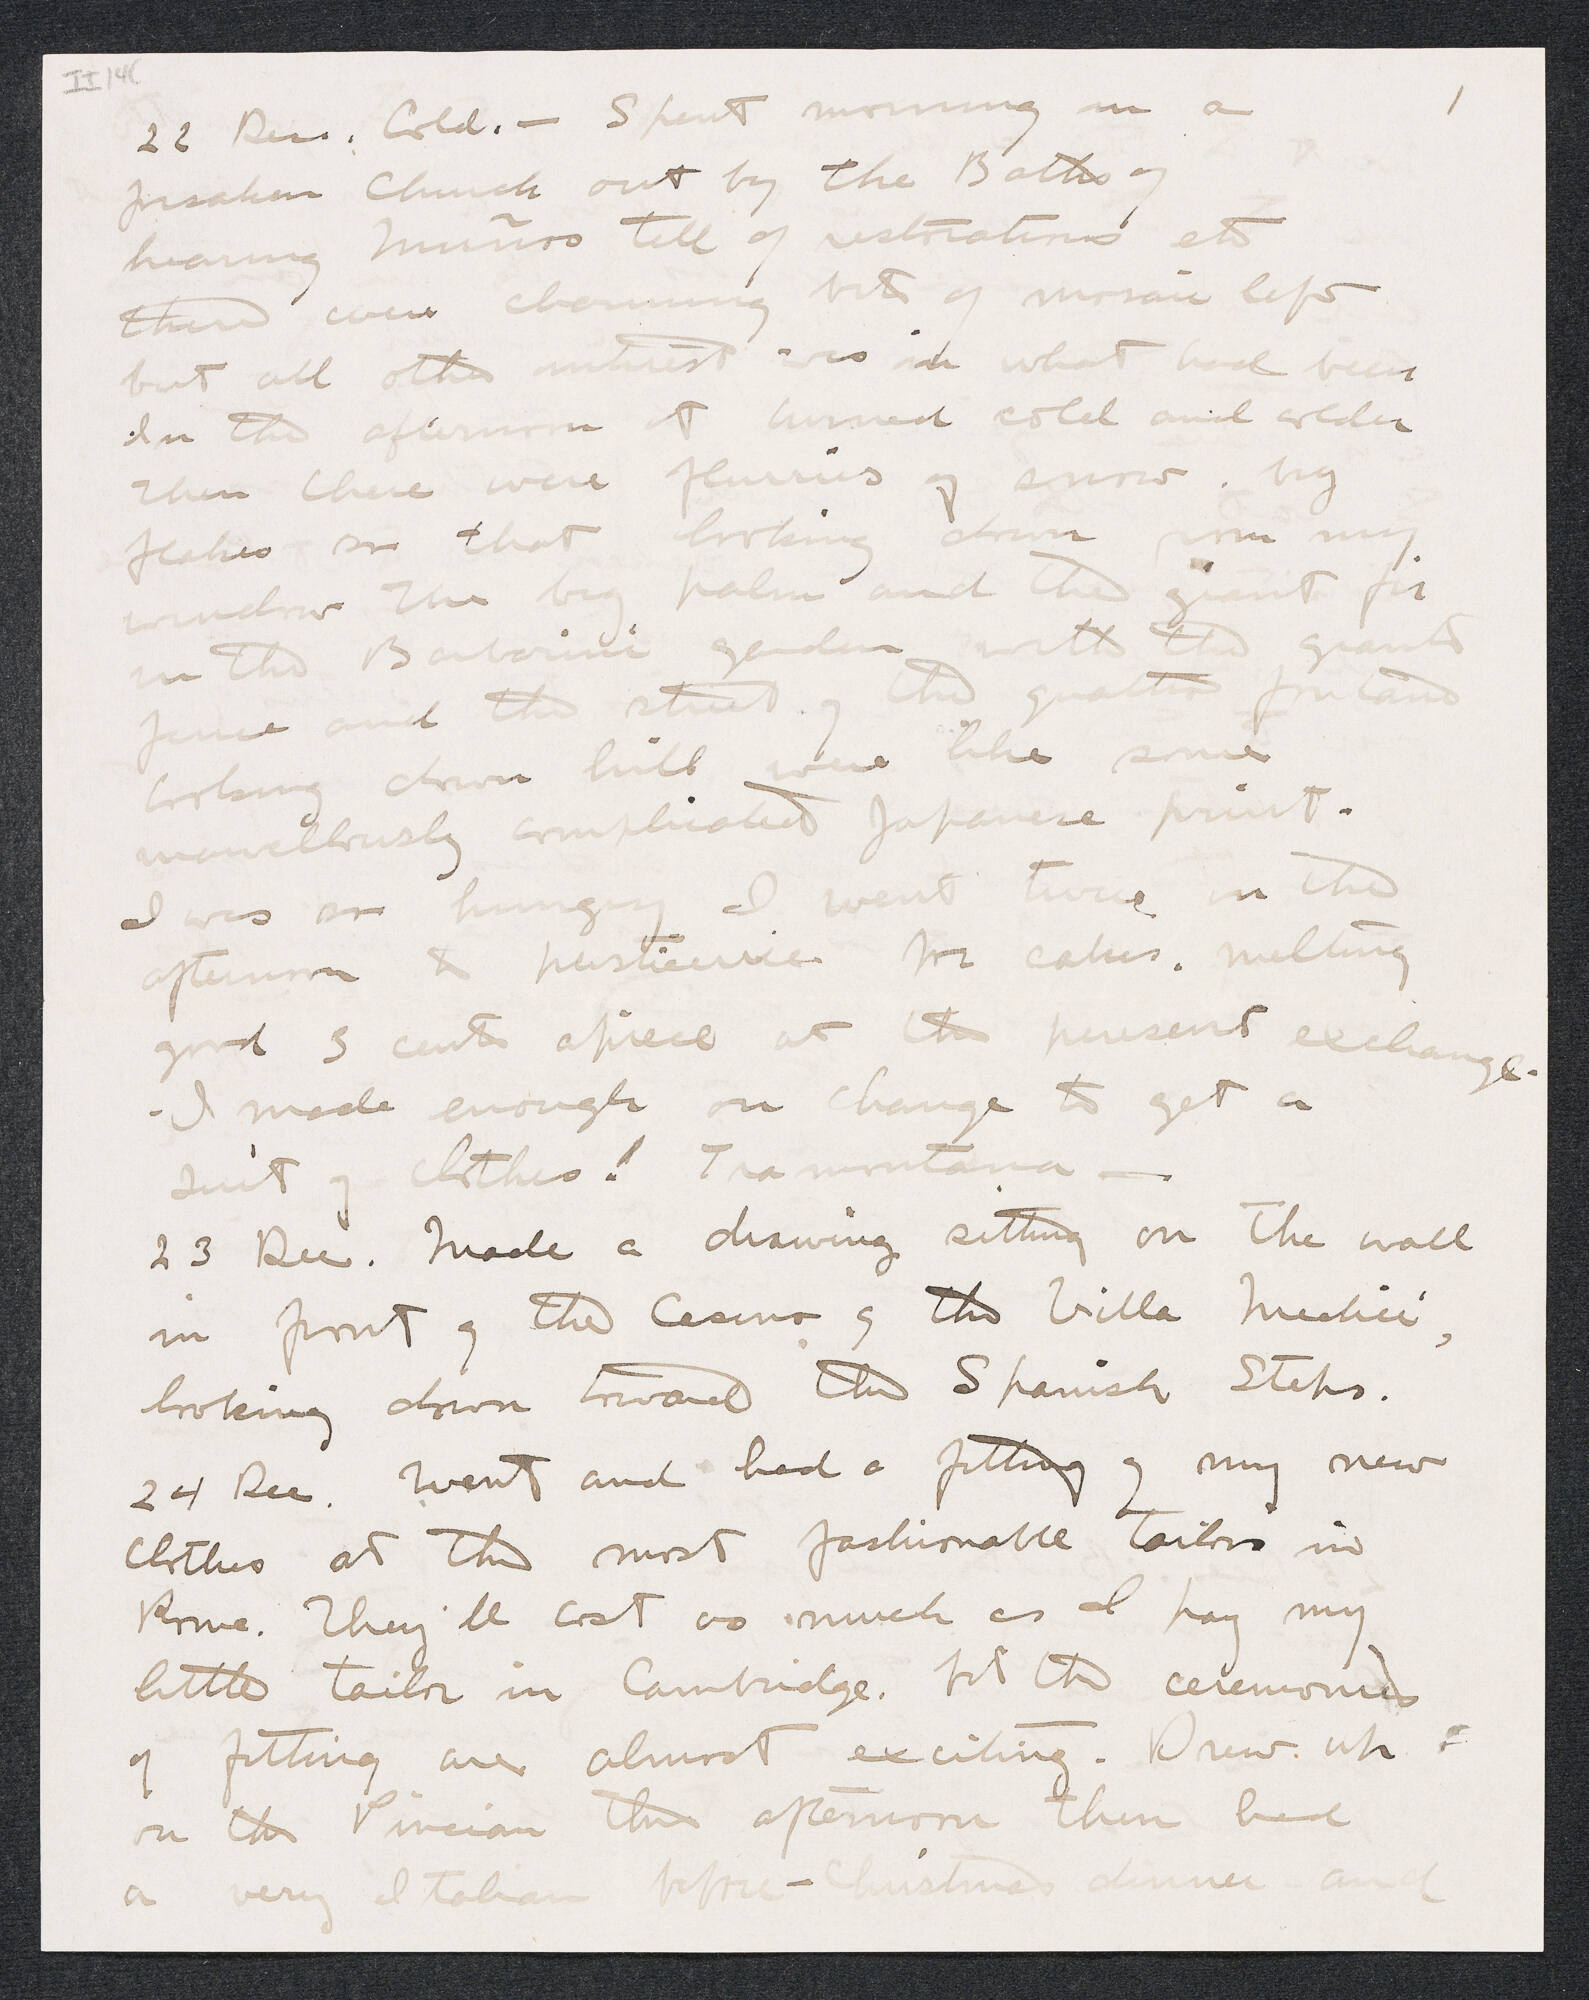 II 146
1
22 Dec. Cold. — Spent morning in a
forsaken Church out by the Baths of
hearing Muñoz tell of restorations etc
there were charming bits of mosaic left
but all other interest was in what had been
In the afternoon it turned cold and colder
then there were flurries of snow. big
flakes so that looking down from my
window the big palm and the giant fir
in the Barberini garden with the giants
fence and the street of the quattro fontane
looking down hill were like some
marvellously complicated Japanese print.
I was so hungry I went twice in the
afternoon to for cakes. melting
good 3 cents apiece at the present exchange.
- I made enough on change to get a
suit of clothes! Tramontana —
23 Dec. Made a drawing sitting on the wall
in front of the Casino of the Villa Medici,
looking down toward the Spanish Steps.
24 Dec. Went and had a fitting of my new
clothes at the most fashionable tailors in
Rome. They'll cost as much as I pay my
little tailor in Cambridge. but the ceremonies
of fitting are almost exciting. Drew up
on the Pincian this afternoon then had
a very Italian before-Christmas dinner and